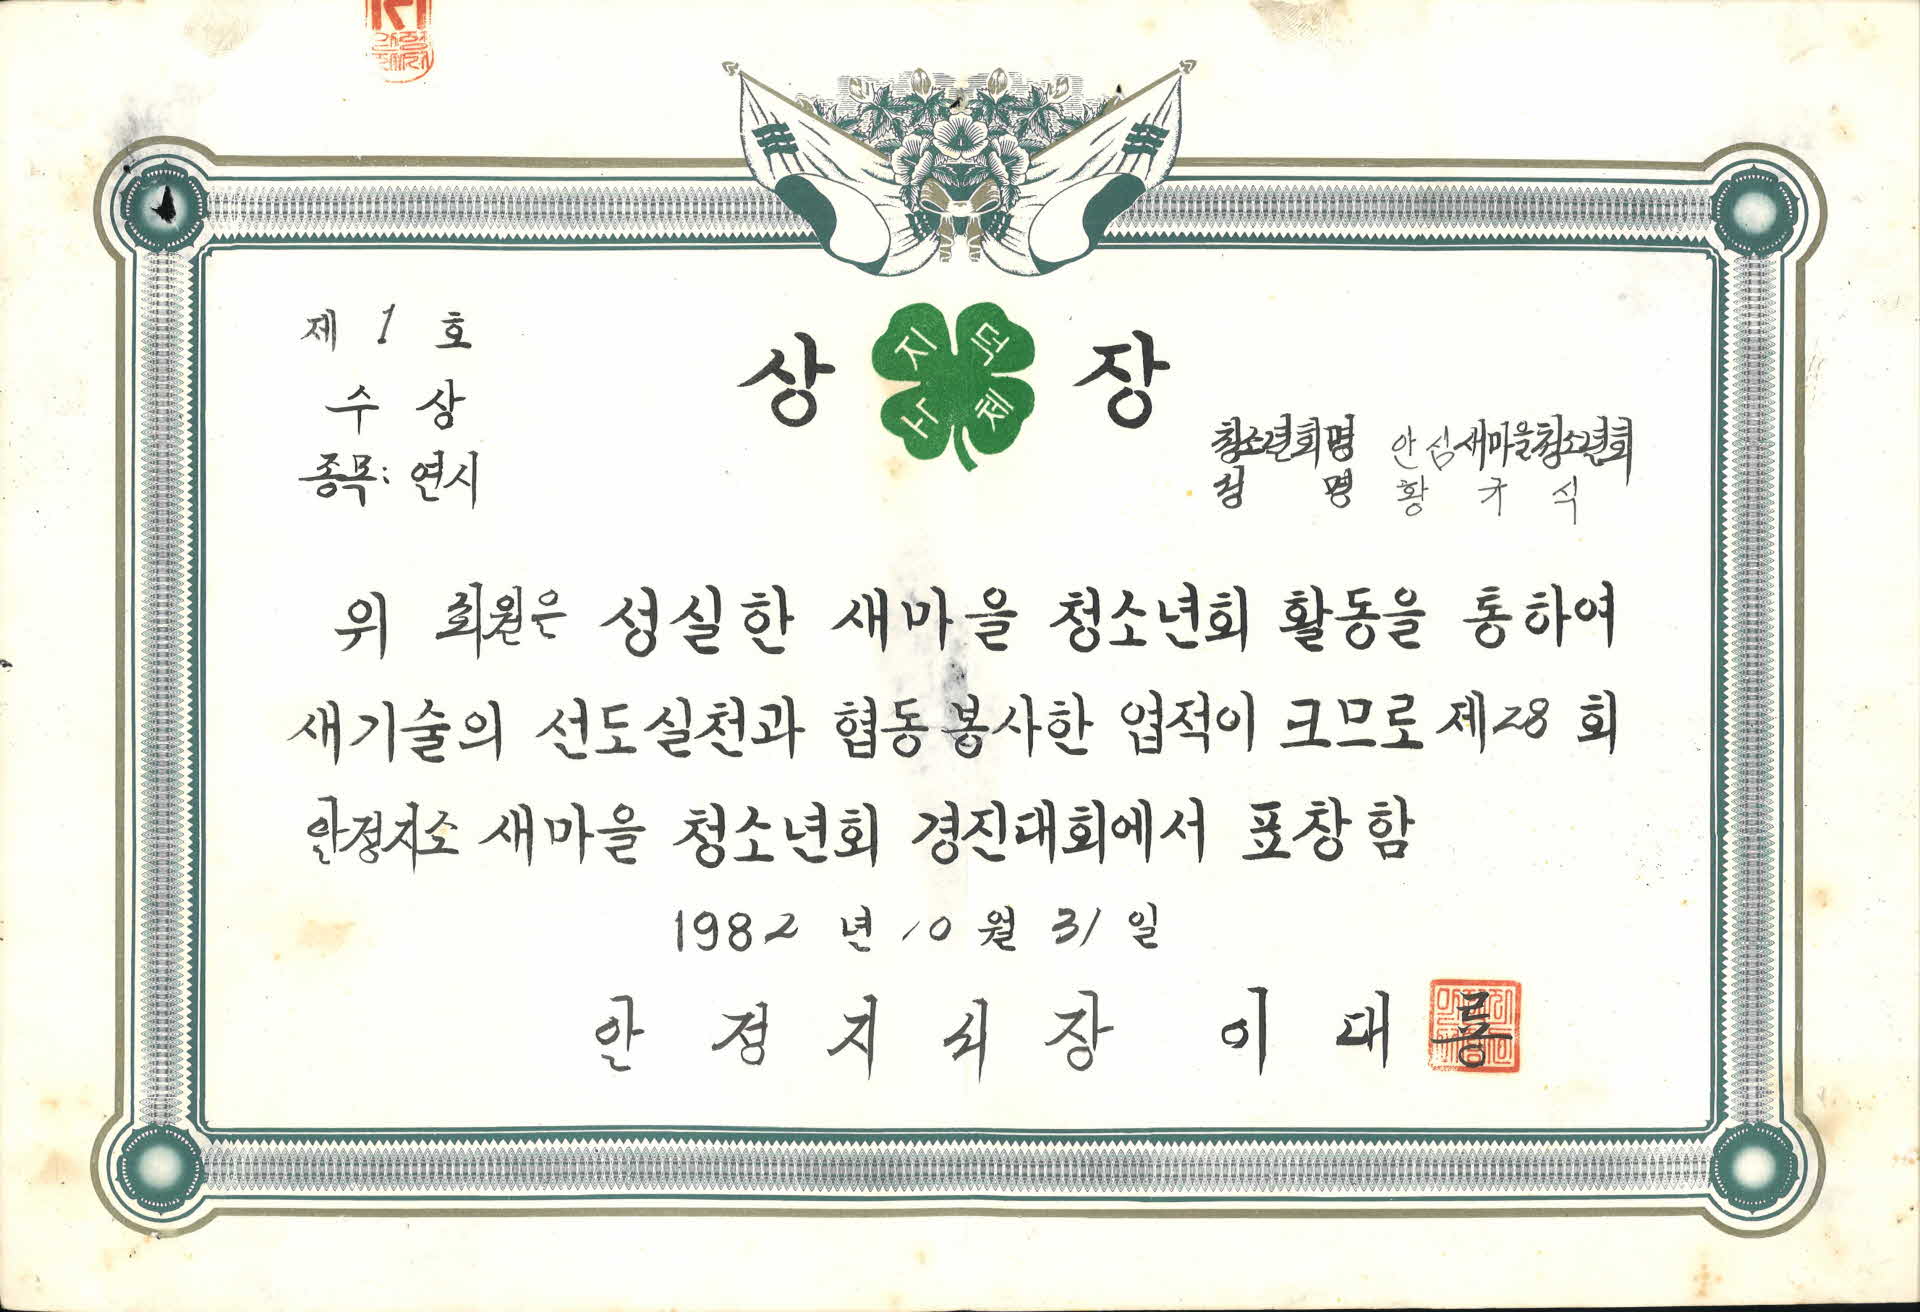 제 1 호
상 장
지 덕
노 체
수 상
종목: 연시
청소년회명 안심새마을청소년회
성 명 황규식
위 회원은 성실한 새마을 청소년회 활동을 통하여
새기술의 선도실천과 협동봉사한 업적이 크므로 제28회
안정지소 새마을 청소년회 경진대회에서 표창함
1982년 10월 31일
안정지소장 이대룡